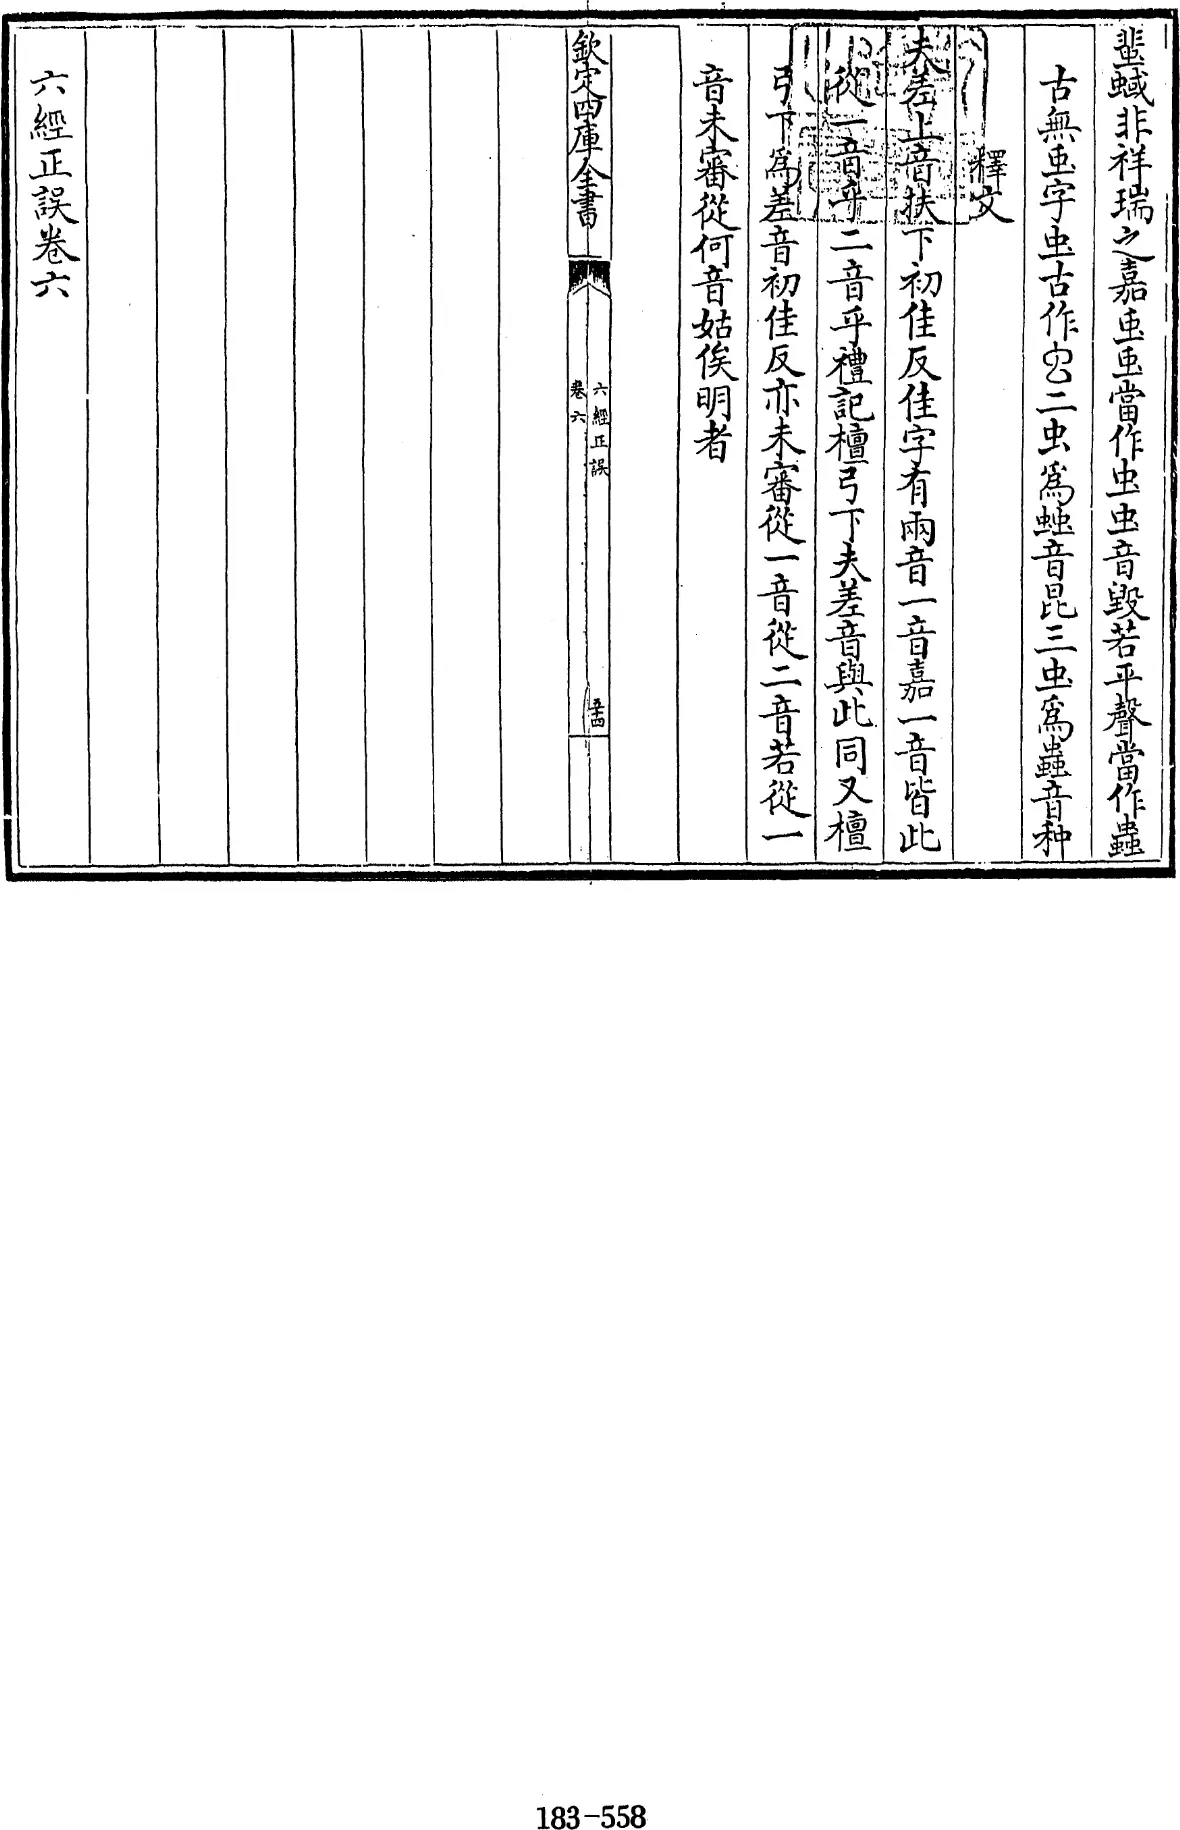 蜚蜮非祥瑞之嘉䖝䖝當作虫虫音毀若平聲當作蟲
古無䖝字虫古作二虫爲䖵音昆三虫爲蟲音种
釋文
夫差上音扶下初佳反佳字有兩音一音嘉一音皆此
從一音乎二音乎禮記檀弓下夫差音與此同又檀
弓下爲差音初佳反亦未審從一音從二音若從一
音未審從何音姑俟明者
欽定四庫全書
六經正誤
卷六
五十四
六經正誤卷六
183-558